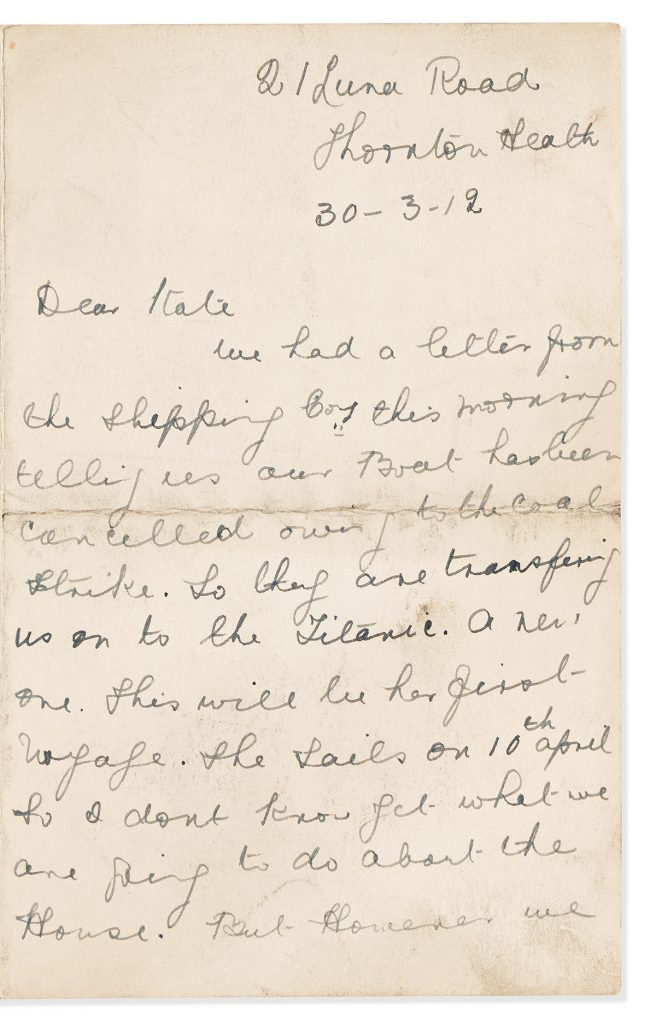 21 Luna Road
Thornton Heath
30-3-12
Dear Kate
we had a letter from
the shipping Coy this morning
tellig us our Boat has been
cancelled owing to the coal
strike. So they are transfering
us on to the Titanic. A new
one. This will be her first
Voyage. She sails on 10th april
So I dont know yet what we
are going to do about the
House. But However we